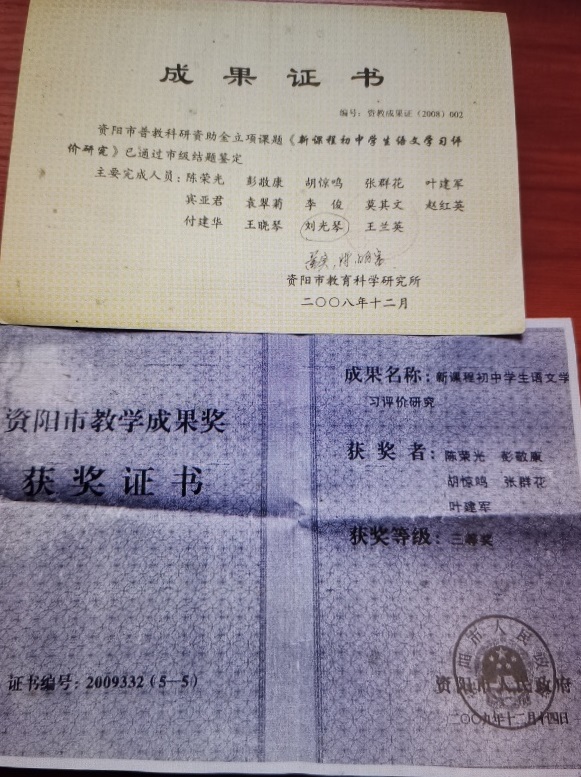 成果证书
编号：资教成果证（2008）002
资阳市普教科研资助金立项课题《新课程初中学生语文学习评
价研究》已通过市级结题鉴定
主要完成人员：陈荣光 彭敬康 胡惊鸣 张群花 叶建军
宾亚君 袁翠菊 李俊 莫其文 赵红英
付建华 王晓琴 刘光琴 王兰英
资阳市教育科学研究所
二〇〇八年十二月
资阳市教学成果奖
获奖证书
证书编号：2009332（5—5）
成果名称：新课程初中学生语文学
习评价研究
获奖者：陈荣光 彭敬康
胡惊鸣 张群花
叶建军
获奖等级：三等奖
资阳市人民政府